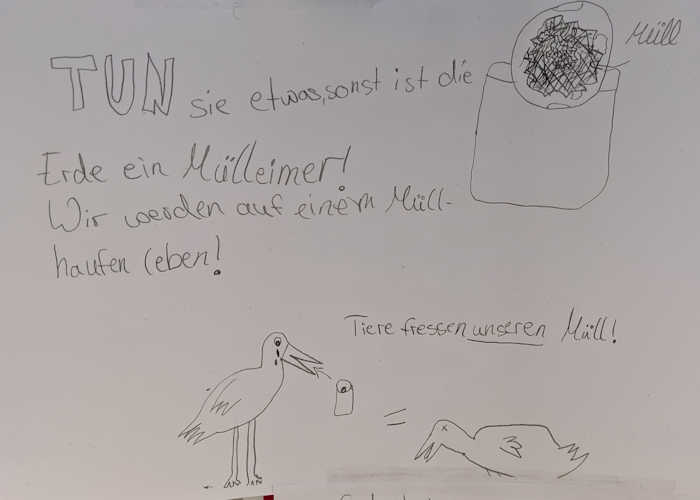 Müll
TUN sie etwas, sonst ist die
Erde ein Mülleimer!
Wir werden auf einem Müll-
haufen leben!
Tiere fressen unseren Müll!
=